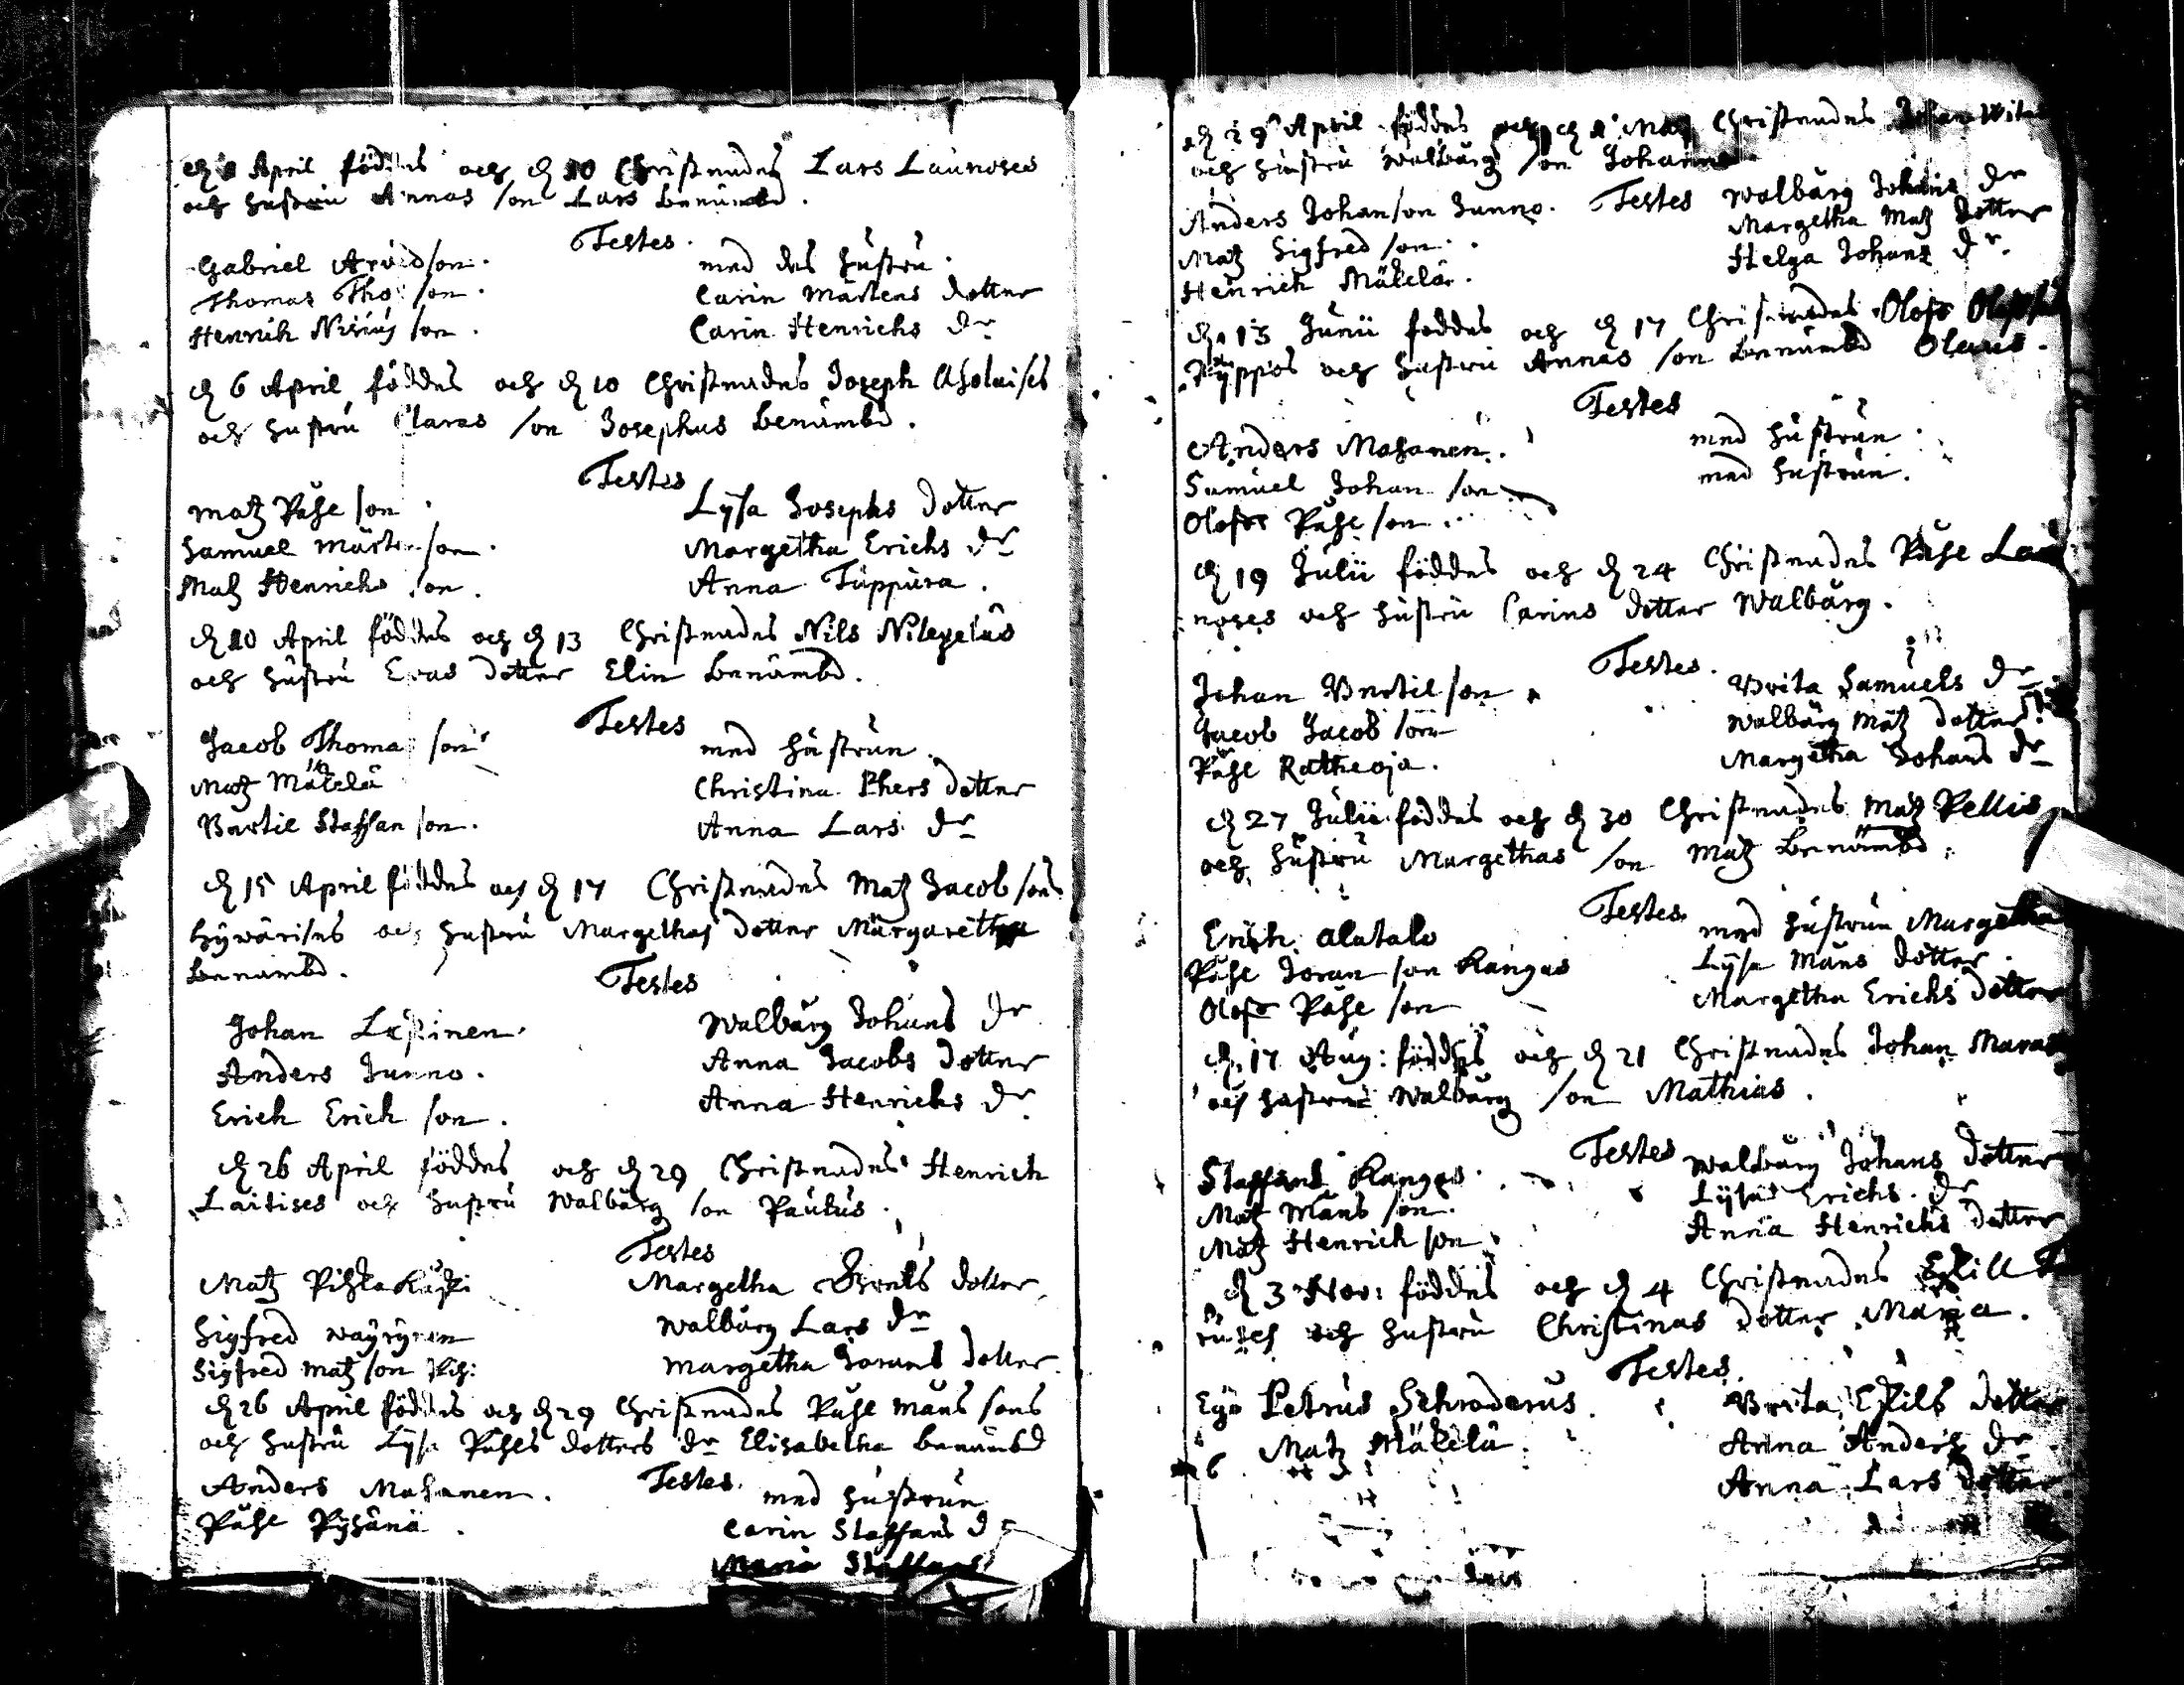 April föddes och d 10 Christnades Lars Launoses
och hustru Annas son Lars benämbd.
Testes.
Gabriel Arvidson. med des hustru.
Thomas Tho: son. Carin Mårtens dotter
Henrik son. Carin Henrichs dr
d 6 April föddes och d 10 Christnades Joseph
och hustru Claras son Josephus benämbd.
Testes
Matz Påhe son. Lysa Josephs dotter
Samuel Mårten son. Margetha Erichs dr
Matz Henrichs son. Anna Tuppura.
d 10 April föddes och d 13 Christnades Nils
och hustru Evas dotter Elin benämbd.
Testes
Jacob Thomas son med hustrun.
Matz Mäkelä Christina Phers dotter
Bertil Staffan son. Anna Lars dr
d 15 April föddes och d 17 Christnades Matz Jacob sons
Hyvärises och hustru Margethas dotter Margaretha
benämbd.
Testes
Johan Walburg Johans dr
Anders Junno. Anna Jacobs dotter
Erich Erich son. Anna Henrichs dr
d 26 April föddes och d 29 Christnades Henrich
Laitises och hustru Walburg son Paulus.
Testes
Matz Margetha dotter
Sigfred Wäyrynen Walburg Lars dr
Sigfred Matz son Margetha Jorans dotter
d 26 April föddes och d 29 Christnades Påhl Måns sons
och hustru Lysa Påhls dotters dr Elisabetha benämbd
Testes.
Anders Mahanen. med hustrun
Påhl Pyhänä. Carin Staffans d
Maria Staffans
d 29 April föddes och d Maij Christnades Johan
och hustru Walburg son Johannes
Testes
Anders Johanson Junno. Walburg Johans dr
Matz Sigfred son. Margetha Matz dotter
Henrich Mäkelä. Helga Johans dr.
d. 13 Junii föddes och d 17 Christnades Olof
och hustru Annas son benämbd Olaus.
Testes
Anders Mahanen. med hustrun
Samuel Johan son med hustrun.
Olof Påhl son
d 19 Julii föddes och d 24 Christnades Påhl Lau
noses och hustru Carins dotter Walburg.
Testes.
Johan Bertil son Brita Samuels dr
Jacob Jacob son Walburg Matz dotter
Påhl Ratheoja. Margetha Johans dr
d 27 Julii föddes och d 30 Christnades Matz Pellis
och hustru Margethas son Matz benämbd.
Testes.
Erich Alatalo med hustrun Margetha
Påhl Joran son Kangas Lysa Måns dotter.
Olof Påhl son Margetha Erichs dotter
d. 17 Aug: föddes och d 21 Christnades Johan
och hustru Walburg son Mathias.
Testes
Staffans Kangas. Walburg Johans dotter
Matz Måns son. Lysa Erichs dr
Matz Henrich son Anna Henrichs dotter
d 3 Nov: föddes och d 4 Christnades Eskill
och hustru Christinas dotter Maria.
Testes.
Ego Petrus Schroderus. Brita Eskils dotter
Matz Mäkelä. Anna Anders dr
Anna Lars dotter